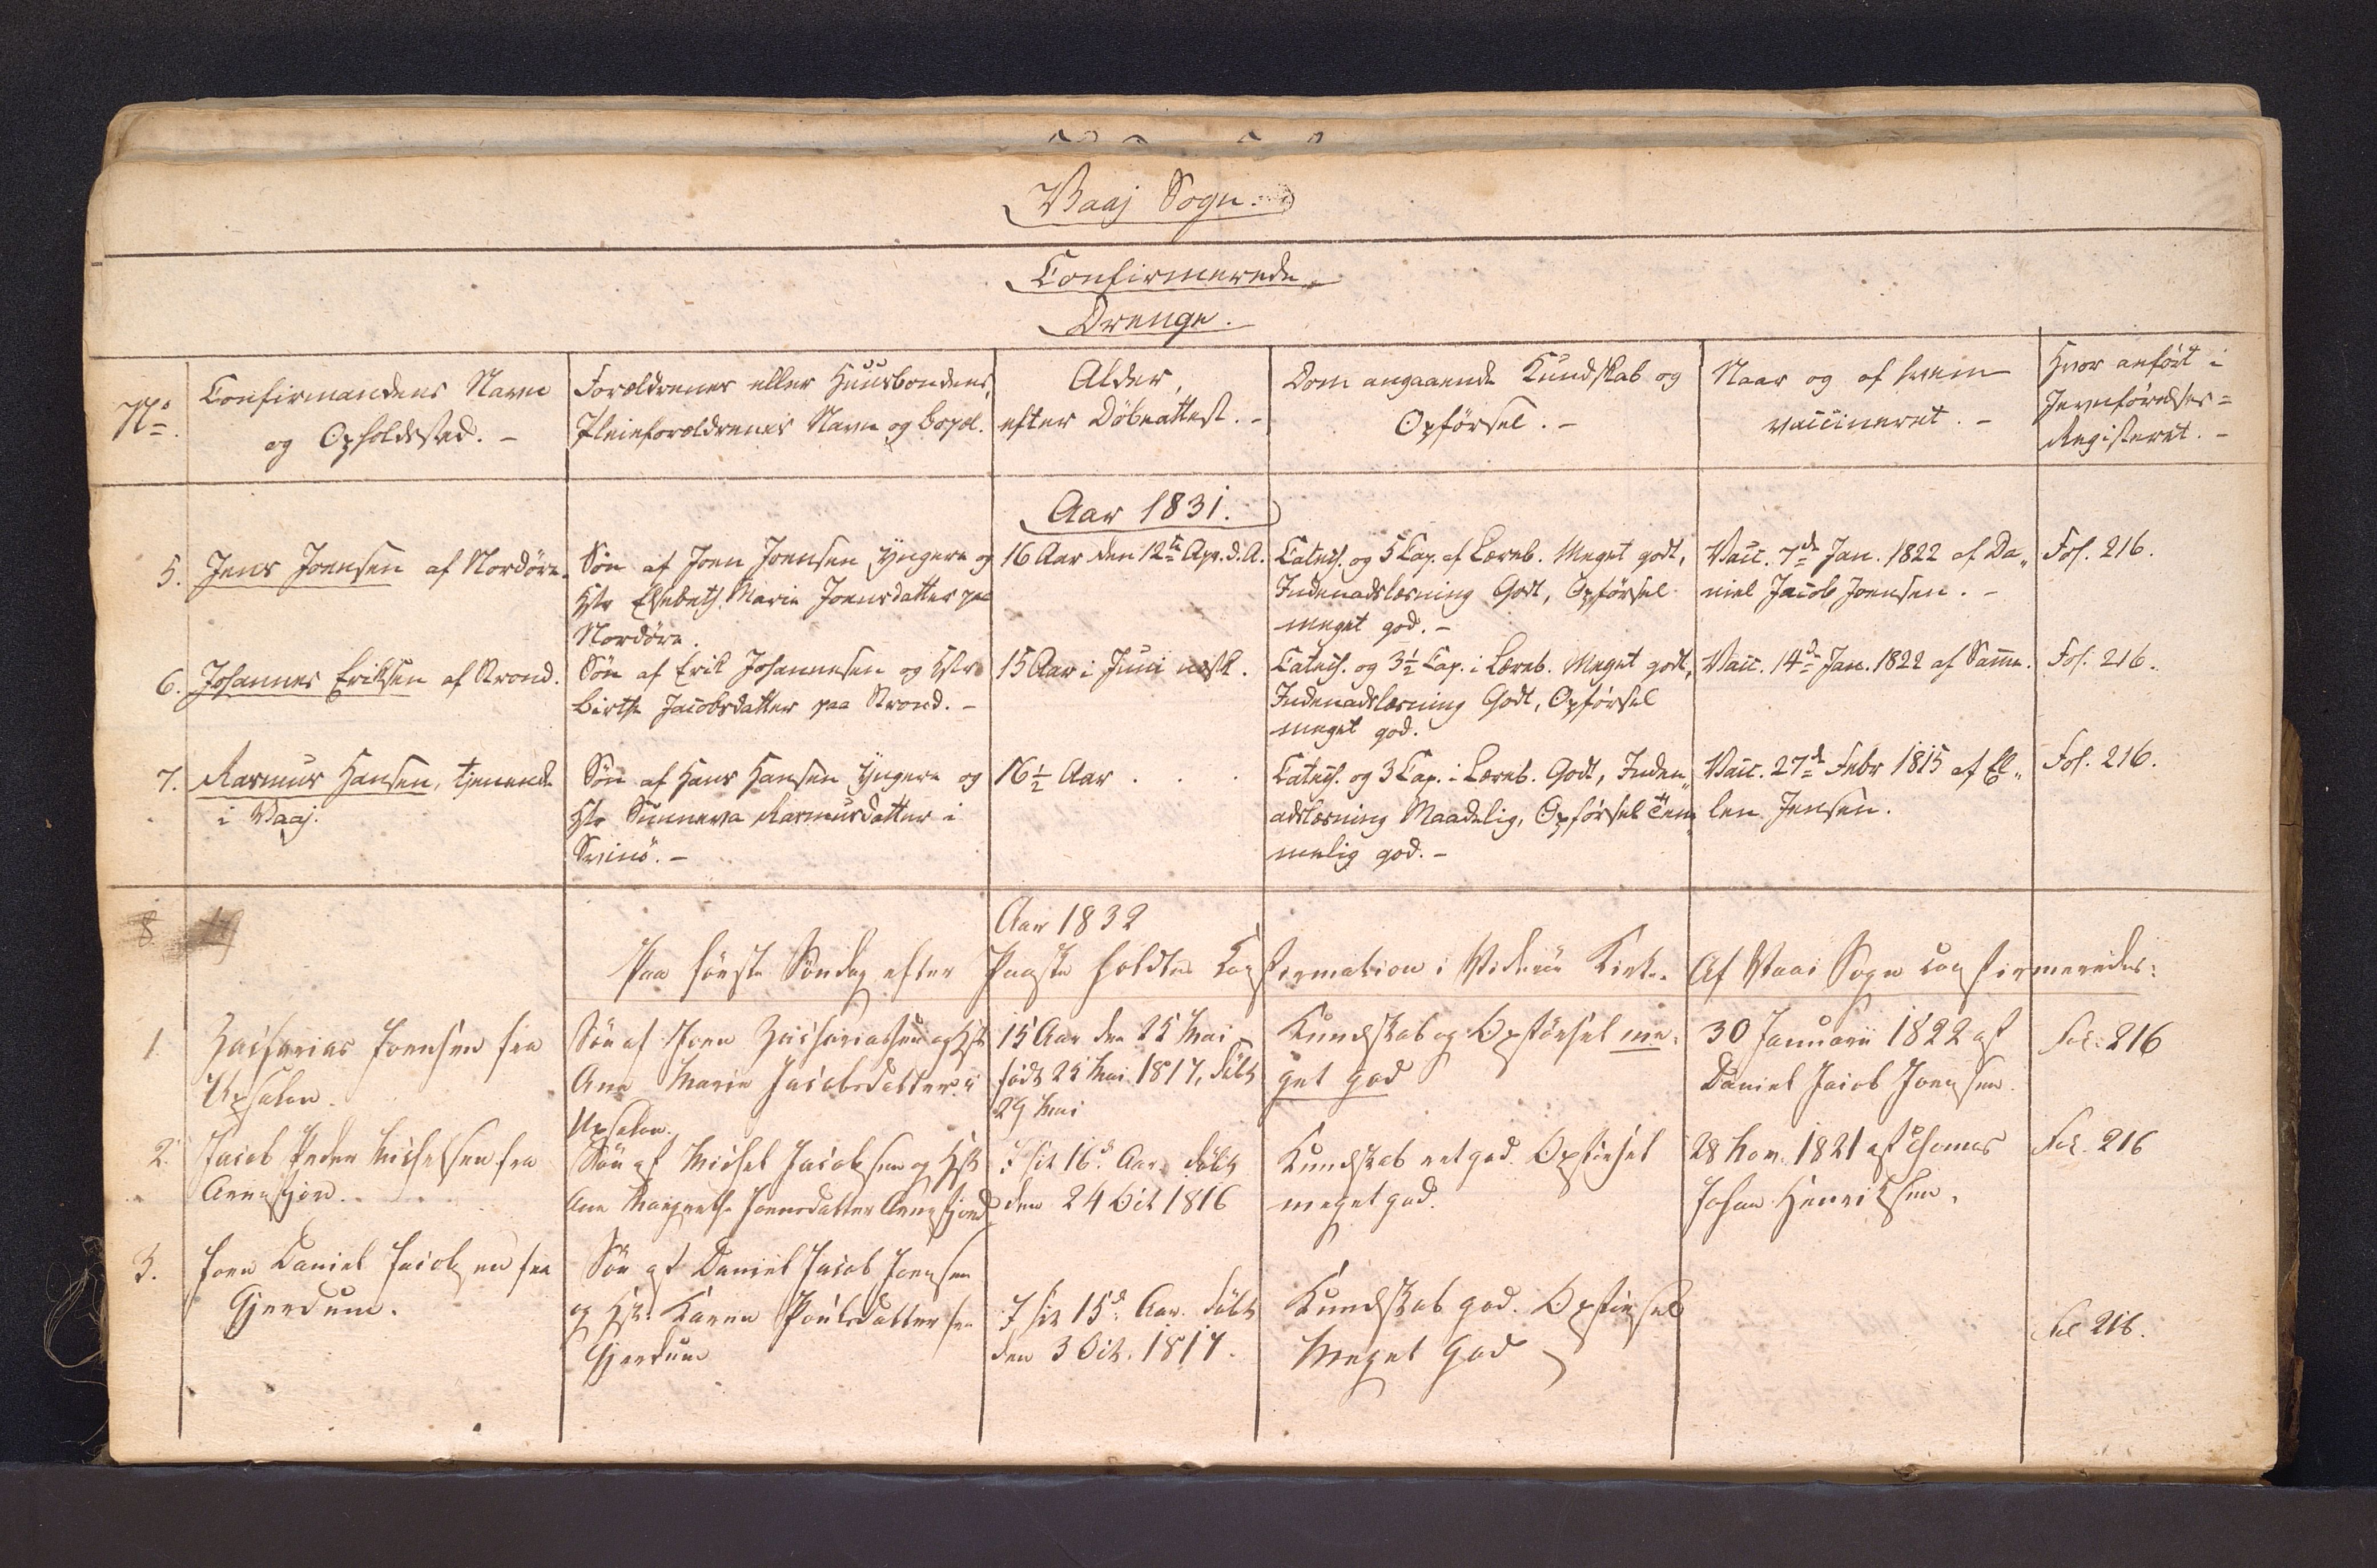 Vaaj Sogn.
Confirmerede
Drenge.
No.
Confirmandens Navn
og Opholdssted. -
Forældrenes eller Huusbondens,
Pleieforældrenes Navn og Bopæl.
Alder,
efter Döbeattest. -
Dom angaaende Kundskab og
Opförsel. -
Naar og af hvem
vaccineret. -
Hvor anfört i
Jevnförelses=
Registeret. -
Aar 1831.
5. Jens Joensen af Nordöre.
Sön af Joen Joensen Yngere og
Hstr Elsebeth Marie Joensdatter paa
Nordöre.
16 Aar den 12te Apr. d. A.
Catech. og 5 Cap. af Læreb. Meget godt,
Indenadslæsning Godt, Opförsel
meget god. -
Vacc. 7de Jan. 1822 af Da„
niel Jacob Joensen. -
Fol. 216.
6. Johannes Eriksen af Strond.
Sön af Erik Johannesen og Hstr
Birthe Jacobsdatter paa Strond. -
15 Aar i Juni næst.
Catech. og 3½ Cap. i Læreb. Meget godt,
Indenadslæsning Godt, Opförsel
meget god.
Vacc. 14de Jan. 1822 af Samme.
Fol. 216.
7. Rasmus Hansen, tjenende
i Vaaj.
Sön af Hans Hansen Yngere og
Hstr Sunneva Rasmusdatter i
Svinö. -
16½ Aar . . .
Catech. og 3 Cap. i Læreb. Godt, Inden„
adslæsning Maadelig, Opförsel Tem„
melig god. -
Vacc. 27de Febr 1815 af El„
len Jensen.
Fol. 216.
8
Aar 1832
Paa förste Söndag efter Paaske holdtes Confirmation i Videröe Kirke. Af Vaai Sogn confirmeredes:
1. Zacharias Joensen fra
Upsalen.
Sön af Joen Zachariassen og Hstr
Ane Marie Jacobsdatter i
Upsalen.
15 Aar den 25 Mai
födt 25 Mai 1817, döbt
29 Mai
Kundskab og Opförsel me-
get god
30 Januarii 1822 af
Daniel Jacob Joensen.
Fol. 216
2. Jacob Peder Michelsen fra
Arnefjord.
Sön af Michel Jacobsen og Hstr
Ane Margrethe Joensdatter Arnefjord
I sit 16de Aar. döbt
den 24 Oct 1816
Kundskab ret god. Opförsel
meget god.
28 Nov. 1821 af Thomas
Johan Henriksen.
Fol. 216
3. Joen Daniel Jacobsen fra
Gjerdum.
Sön af Daniel Jacob Joensen
og Hstr. Karen Poulsdatter fra
Gjerdum
I sit 15de Aar. döbt
den 3 Oct. 1817.
Kundskab god. Opförsel
Meget God
Fol 216.